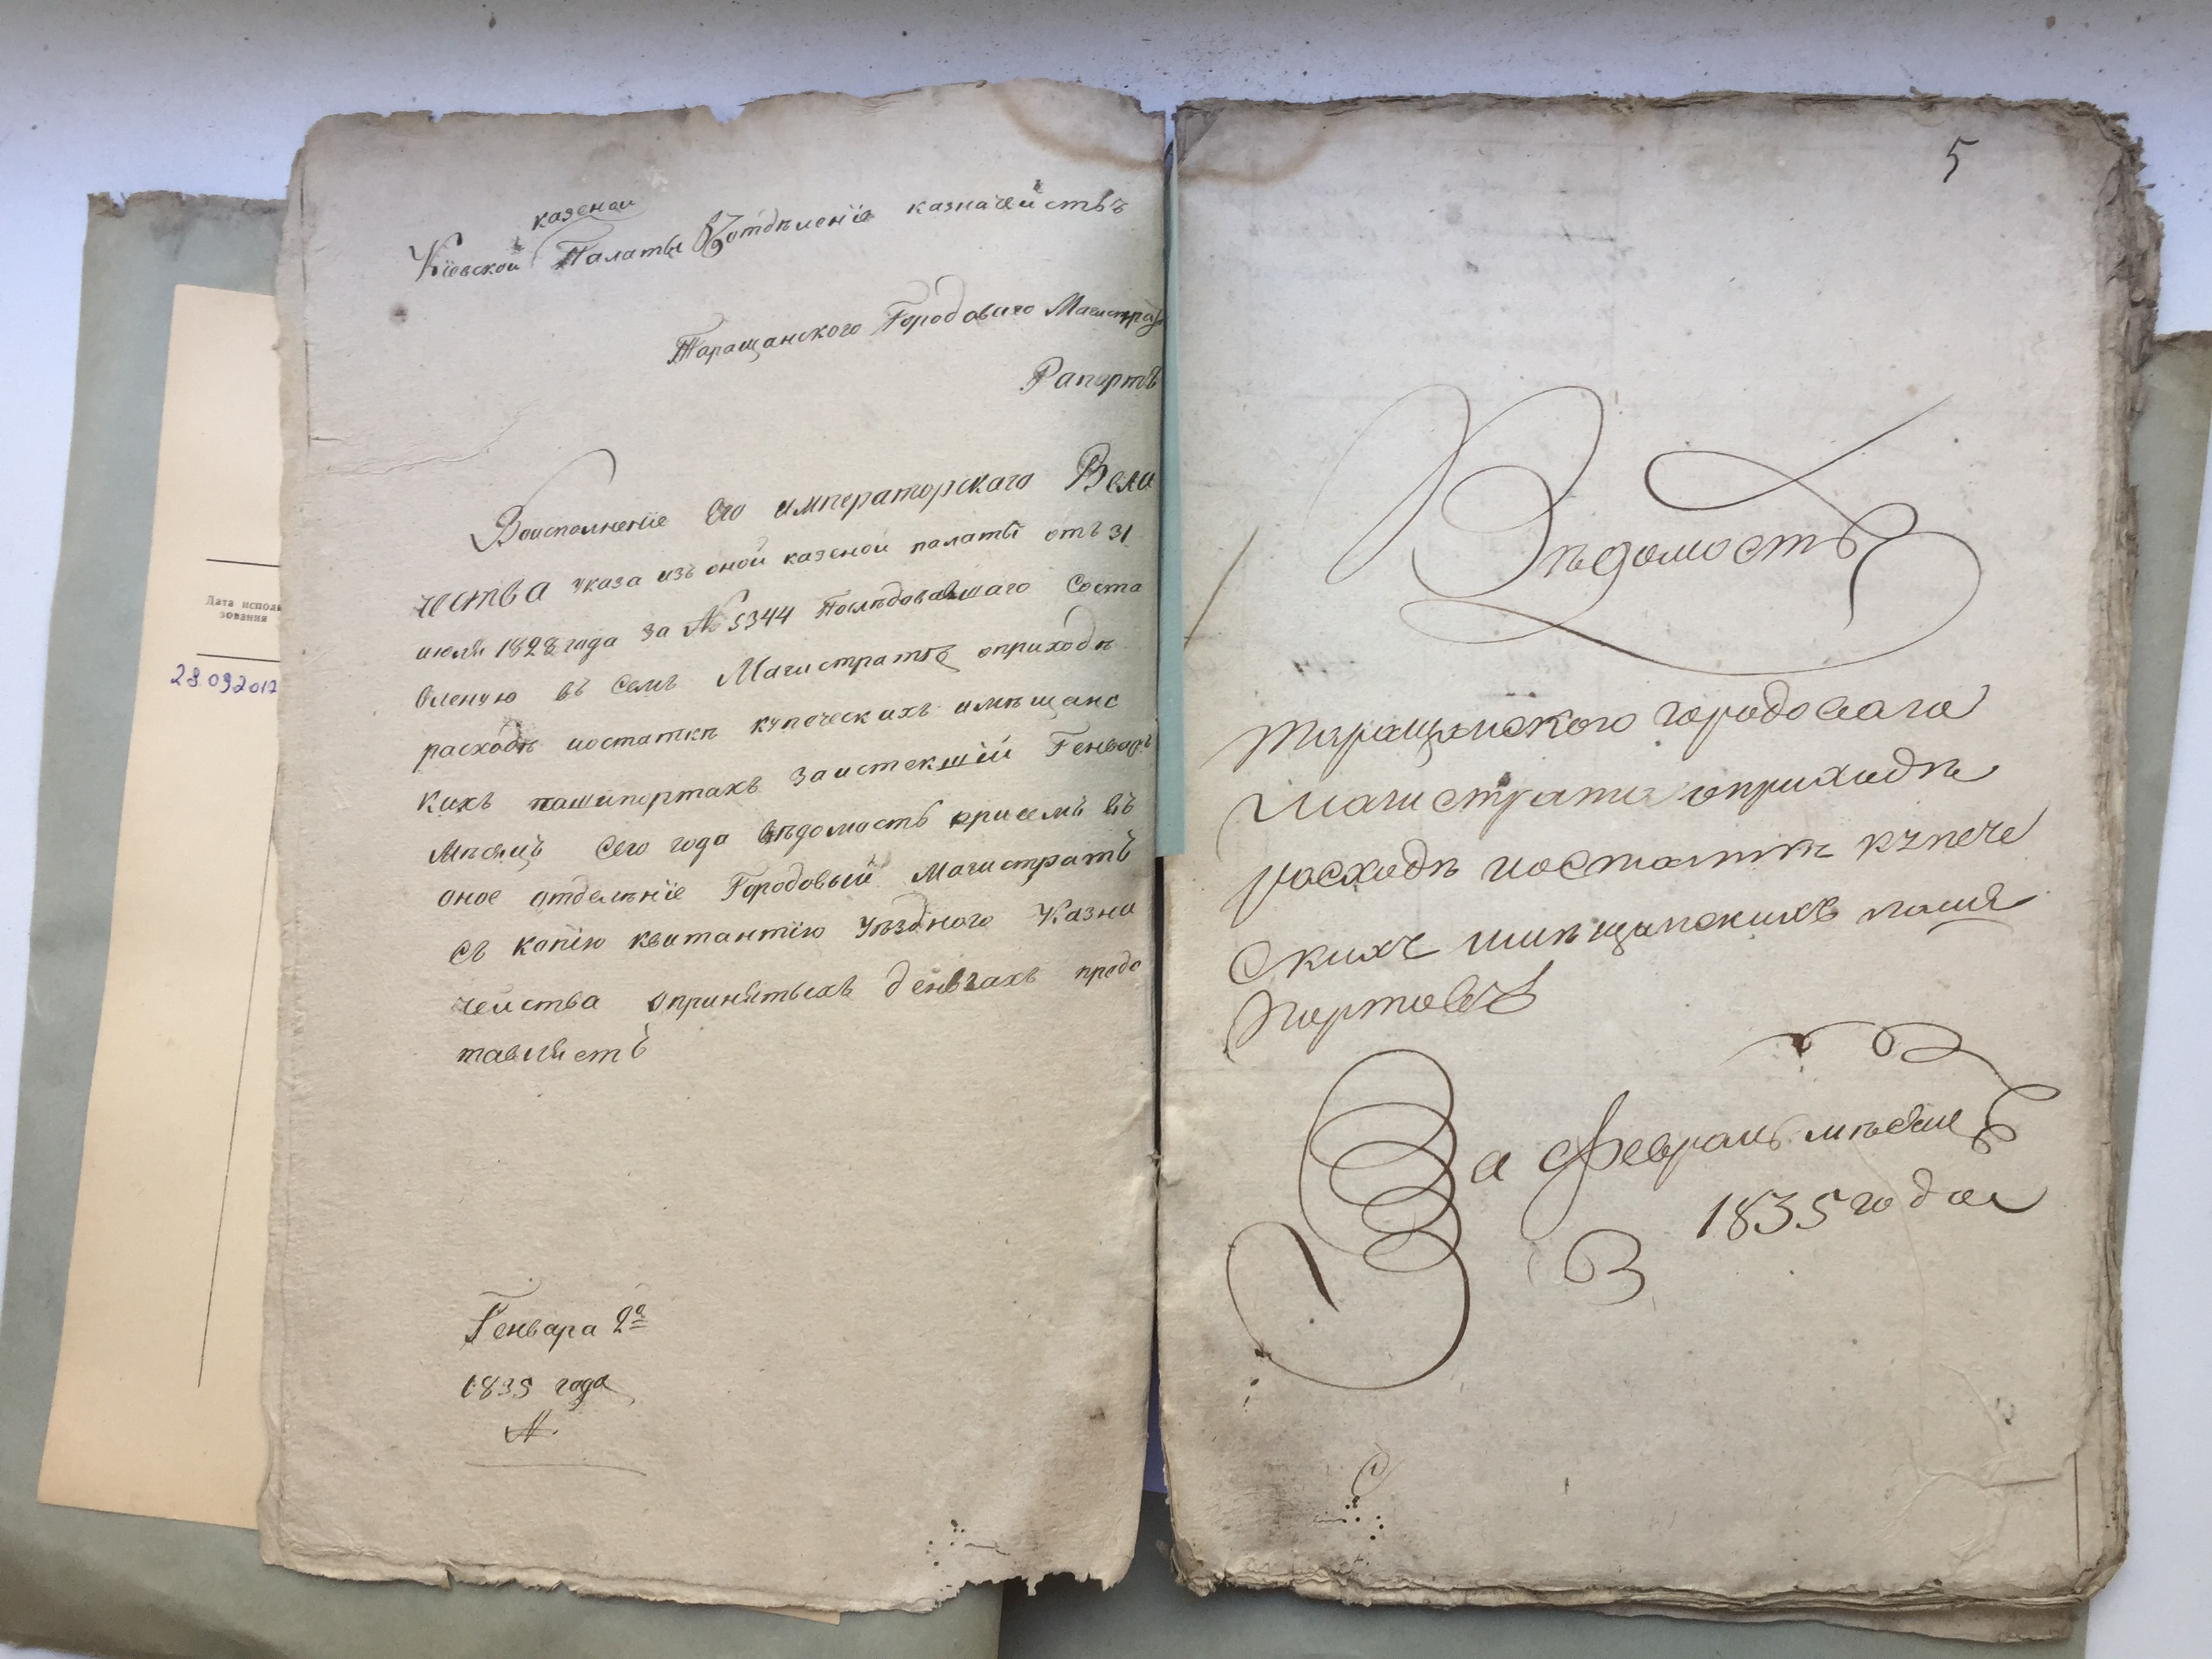 казеной
Кіевской Палаты Въ отдѣленіе казначействъ
Таращанского Городоваго Магистра
Рапортъ
Воисполненіе Его императорскаго Вели
чества указа изъ оной казеной палаты отъ 31
июля 1828 года за № 5344 Послѣдовавшаго Соста
вленую въ семъ Магистратѣ оприходѣ
расходѣ иостаткѣ купеческихъ имѣщанс
кихъ пашпортахъ Заистекшій Генварь
мѣсяцъ Сего года вѣдомость присемъ въ
оное отделѣніе Городовый Магистратъ
съ копію квитантію уѣздного Казна
чейства опринятыхъ денгахъ предс
тавляетъ
Генвара 2го
1835 года
№
Дата исполь-
зования
28.09.2012
5
Вѣдомость
таращанского городоваго
магистрата оприходѣ
росходѣ иостаткѣ купече
скихъ имѣщанскихъ паша
портовъ
За Февраль мѣсяцъ
1835 года
В